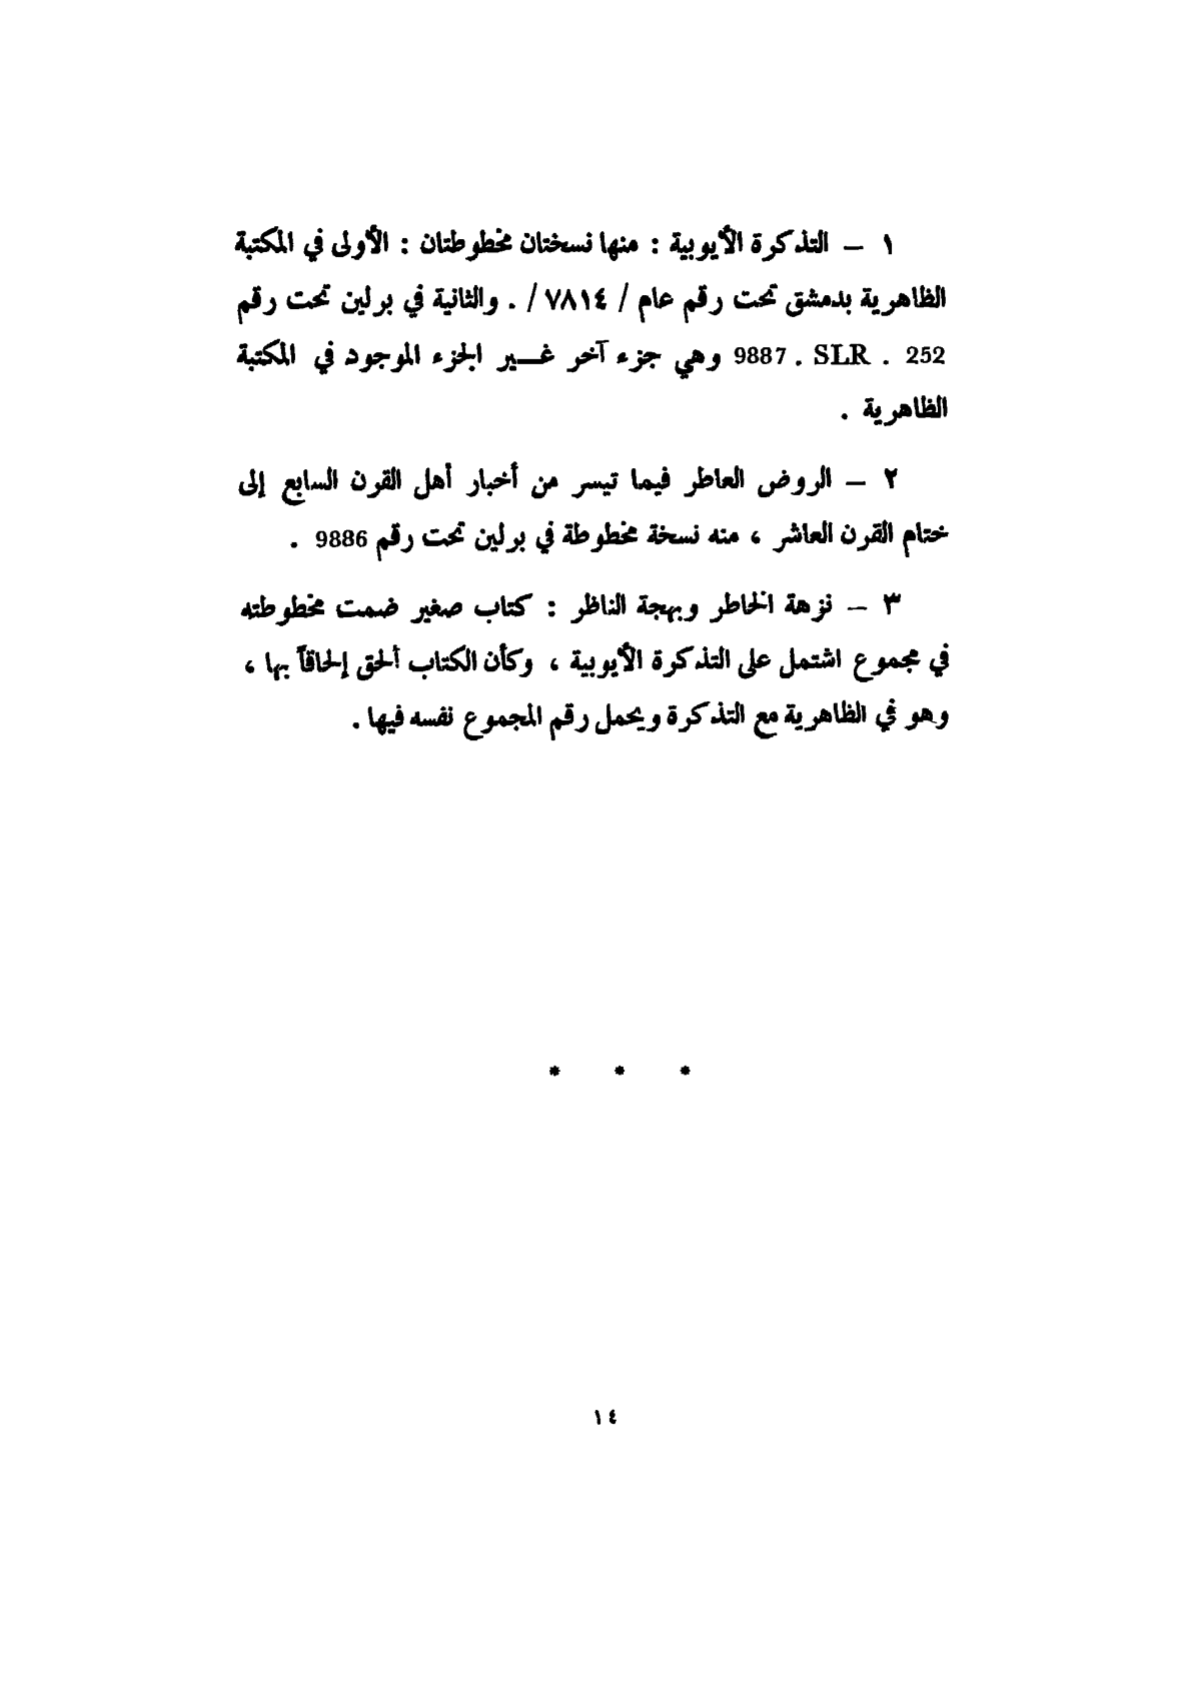 ١ – التذكرة الأيوبية : منها نسختان مخطوطتان : الأولى في المكتبة
الظاهرية بدمشق تحت رقم عام / ٧٨١٤ / . والثانية في برلين تحت رقم
9887 . SLR . 252 وهي جزء آخر غـــير الجزء الموجود في المكتبة
الظاهرية .
٢ – الروض العاطر فيما تيسر من أخبار أهل القرن السابع إلى
ختام القرن العاشر ، منه نسخة مخطوطة في برلين تحت رقم 9886 .
٣ – نزهة الخاطر وبهجة الناظر : كتاب صغير ضمت مخطوطته
في مجموع اشتمل على التذكرة الأيوبية ، وكأن الكتاب ألحق إلحاقاً بها ،
وهو في الظاهرية مع التذكرة ويحمل رقم المجموع نفسه فيها .
* * *
١٤